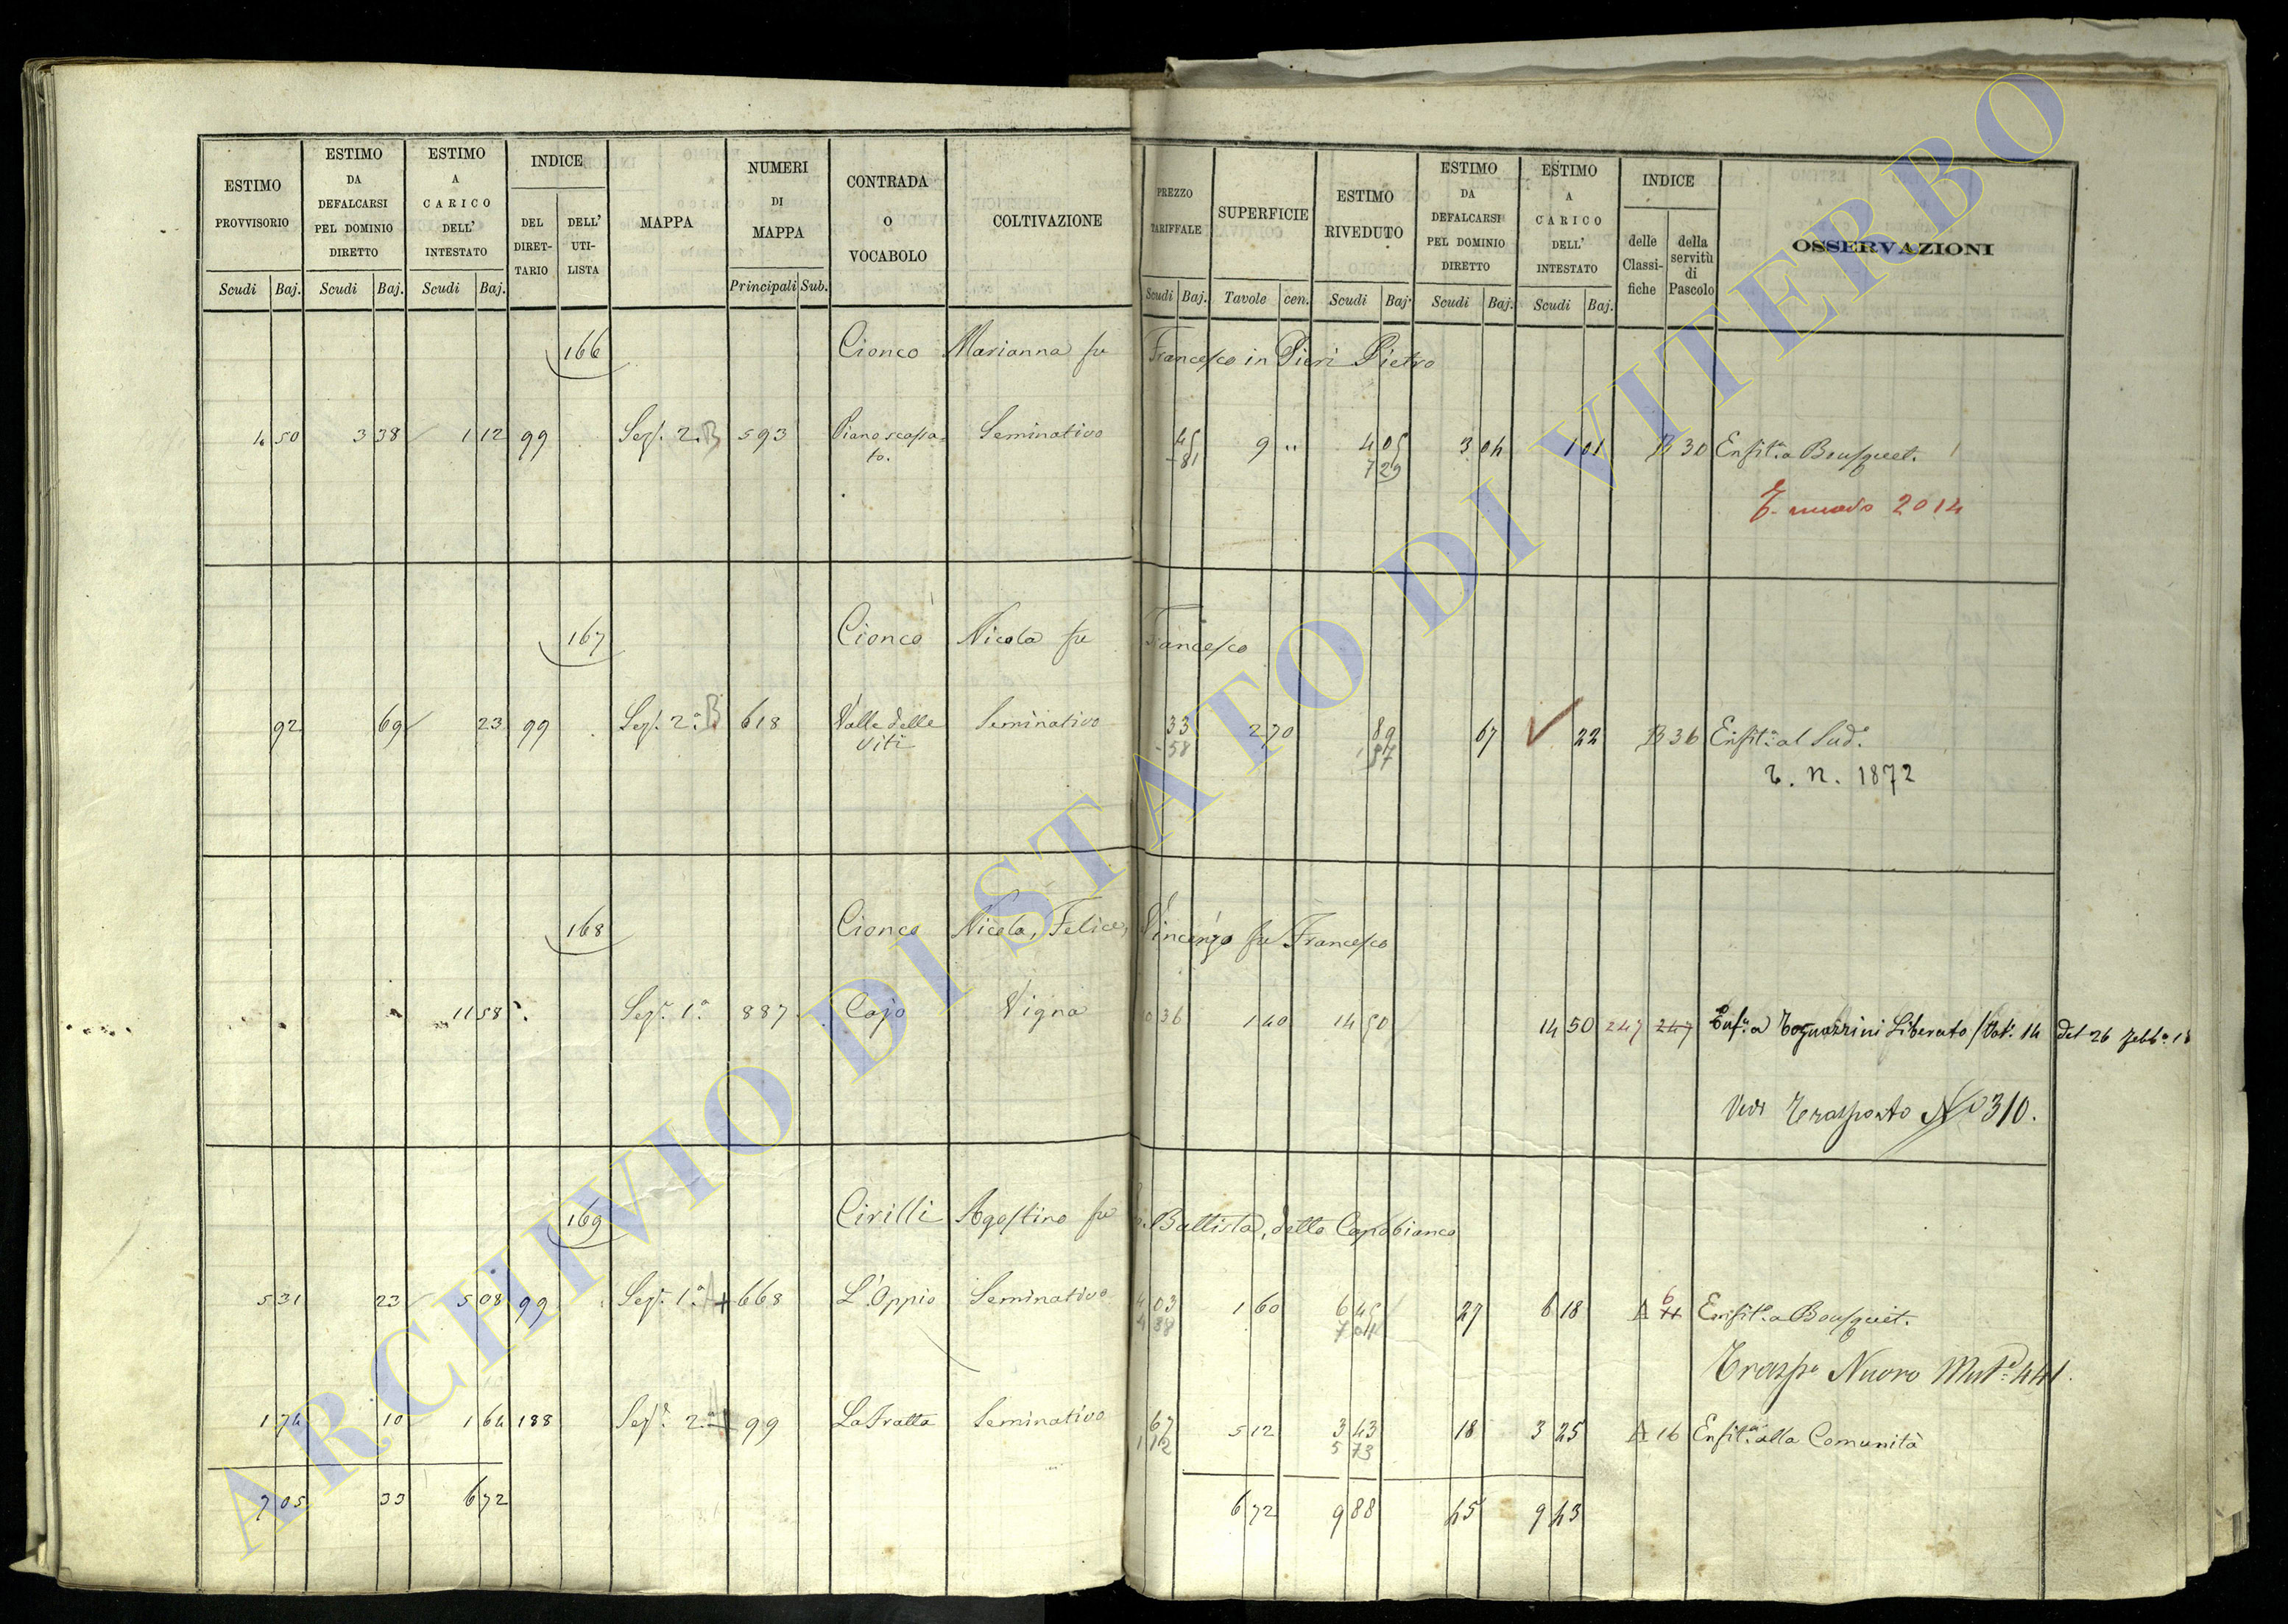 ESTIMO PROVVISORIO | ESTIMO DA DEFALCARSI PEL DOMINIO DIRETTO | ESTIMO A CARICO DELL' INTESTATO | INDICE | MAPPA | NUMERI DI MAPPA | CONTRADA O VOCABOLO | COLTIVAZIONE | PREZZO TARIFFALE | SUPERFICIE | ESTIMO RIVEDUTO | ESTIMO DA DEFALCARSI PEL DOMINIO DIRETTO | ESTIMO A CARICO DELL' INTESTATO | INDICE | OSSERVAZIONI
DEL DIRETTARIO | DELL' UTILISTA | delle Classifiche | della servitù di Pascolo
Scudi | Baj. | Scudi | Baj. | Scudi | Baj. | Principali | Sub. | Scudi | Baj. | Tavole | cen. | Scudi | Baj. | Scudi | Baj. | Scudi | Baj.
166 Cionco Marianna fu Francesco in Pieri Pietro
50 | 3 38 | 1 12 | 99 | Sez. 2. B | 593 | Piano scossato. | Seminativo | 45 | 9 " | 4 05 | 3 04 | 1 01 | B 30 | Enfit. a Bousquet.
81 | 7 29
T. nuovo 2014
167 Cionco Nicola fu Francesco
92 | 69 | 23 | 99 | Sez. 2.a B | 618 | Valle delle Viti | Seminativo | 33 | 2 70 | 89 | 67 | 22 | B 36 | Enfit. al Sud.o
58 | 1 57
T. n. 1872
168 Cionco Nicola, Felice, Vincenzo fu Francesco
11 58 | Sez. 1.a | 887 | Cajo | Vigna | 36 | 1 40 | 14 50 | 14 50 | 247 | 247 | Enf. a Tognarrini Liberato / Vol. 14 del 26 febb.o
Vedi Trasporto No 310.
169 Cirilli Agostino fu Battista, detto Capobianco
5 31 | 23 | 5 08 | 99 | Sez. 1.a A + | 668 | L'Oppio | Seminativo | 4 03 | 1 60 | 6 45 | 27 | 6 18 | A 6 | Enfit. a Bousquet.
4 | 7 04
Trasp.o Nuovo Mut. 441.
1 74 | 10 | 1 64 | 188 | Sez. 2.a + | 99 | La Fratta | Seminativo | 67 | 5 12 | 3 43 | 18 | 3 25 | A 16 | Enfit. alla Comunità
1 12 | 5 73
7 05 | 33 | 6 72 | 6 72 | 9 88 | 45 | 9 43
ARCHIVIO DI STATO DI VITERBO